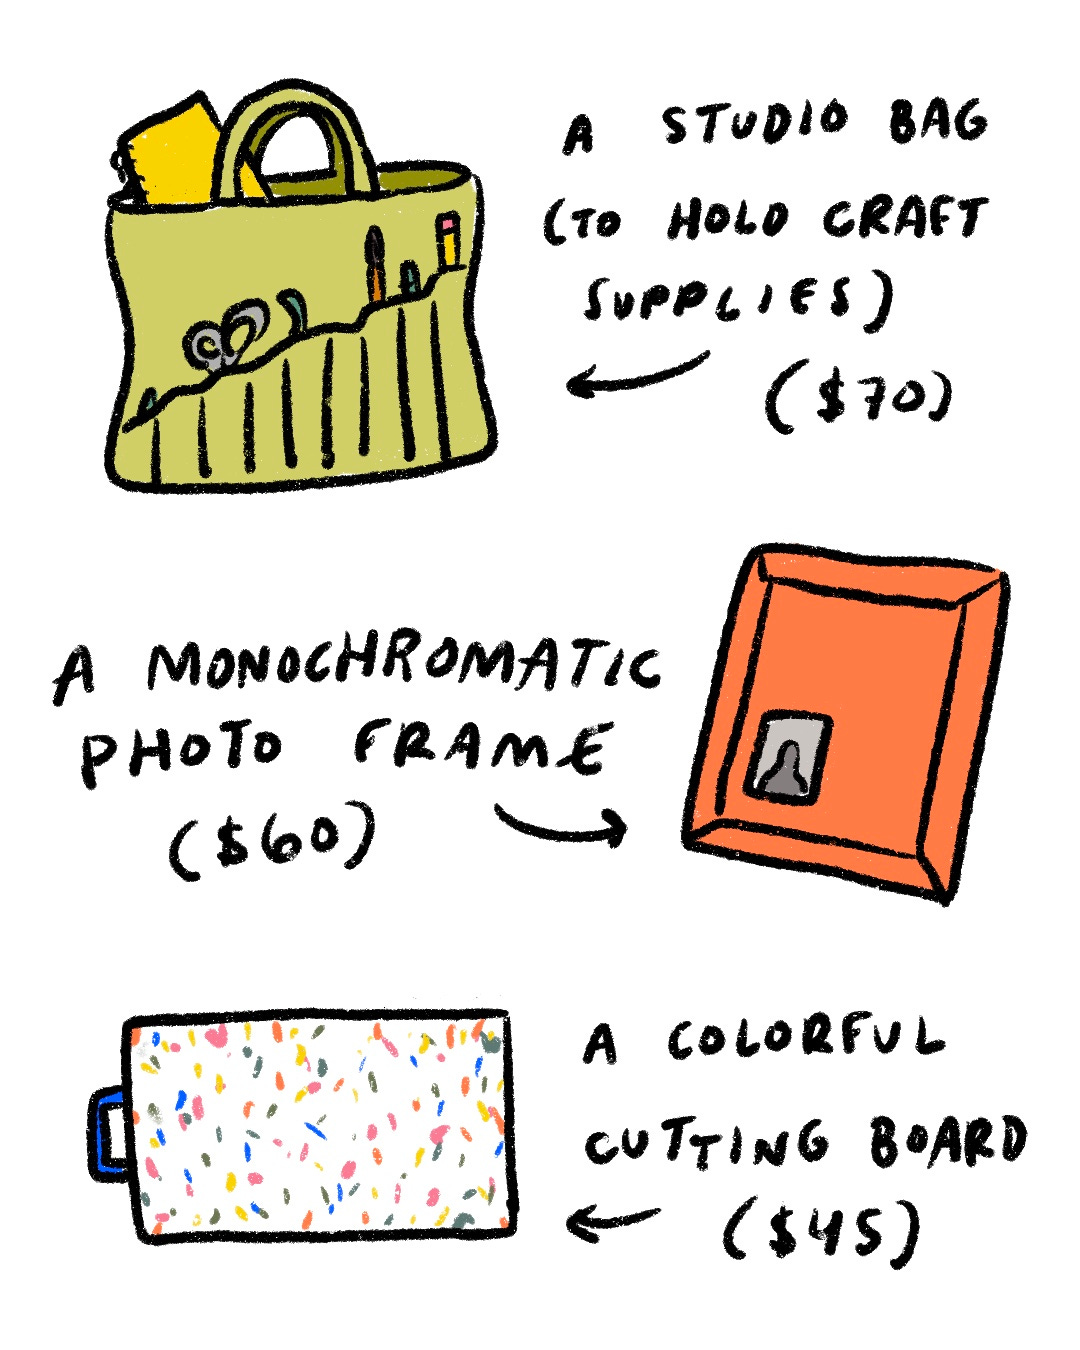 A STUDIO BAG
(TO HOLD CRAFT
SUPPLIES)
($70)
A MONOCHROMATIC
PHOTO FRAME
($60)
A COLORFUL
CUTTING BOARD
($45)